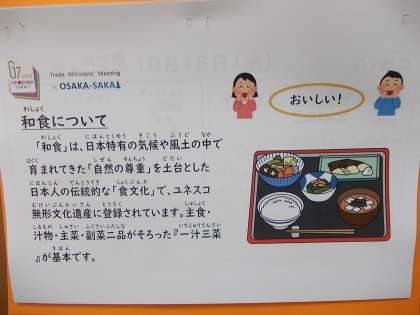 G7 2023
HIROSHIMA
SUMMIT
Trade Ministers' Meeting
in OSAKA-SAKAI
和食について
わしょく
おいしい！
「和食」は、日本特有の気候や風土の中で
わしょく にほんとくゆう きこう ふうど なか
育まれてきた「自然の尊重」を土台とした
はぐく しぜん そんちょう どだい
日本人の伝統的な「食文化」で、ユネスコ
にほんじん でんとうてき しょくぶんか
無形文化遺産に登録されています。主食・
むけいぶんかいさん とうろく しゅしょく
汁物・主菜・副菜二品がそろった『一汁三菜
しるもの しゅさい ふくさいふたしな いちじゅうさんさい
』が基本です。
きほん